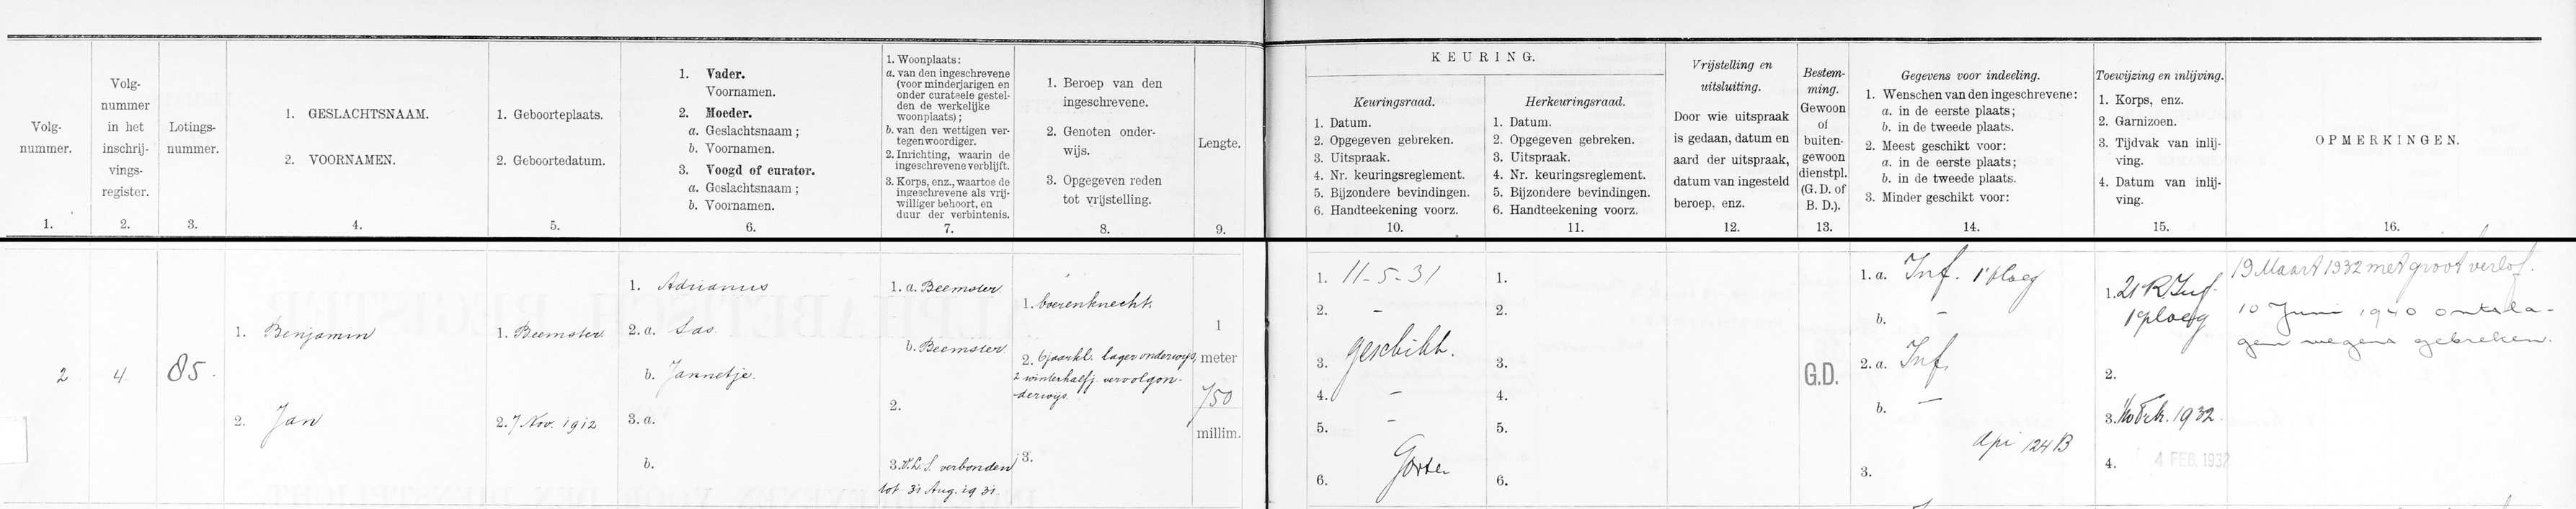 KEURING.
Volg-
nummer.
1.
Volg-
nummer
in het
inschrij-
vings-
register.
2.
Lotings-
nummer.
3.
1. GESLACHTSNAAM.
2. VOORNAMEN.
4.
1. Geboorteplaats.
2. Geboortedatum.
5.
1. Vader.
Voornamen.
2. Moeder.
a. Geslachtsnaam;
b. Voornamen.
3. Voogd of curator.
a. Geslachtsnaam;
b. Voornamen.
6.
1. Woonplaats:
a. van den ingeschrevene
(voor minderjarigen en
onder curateele gestel-
den de werkelijke
woonplaats);
b. van den wettigen ver-
tegenwoordiger.
2. Inrichting, waarin de
ingeschrevene verblijft.
3. Korps, enz., waartoe de
ingeschrevene als vrij-
williger behoort, en
duur der verbintenis.
7.
1. Beroep van den
ingeschrevene.
2. Genoten onder-
wijs.
3. Opgegeven reden
tot vrijstelling.
8.
Lengte.
9.
Keuringsraad.
1. Datum.
2. Opgegeven gebreken.
3. Uitspraak.
4. Nr. keuringsreglement.
5. Bijzondere bevindingen.
6. Handteekening voorz.
10.
Herkeuringsraad.
1. Datum.
2. Opgegeven gebreken.
3. Uitspraak.
4. Nr. keuringsreglement.
5. Bijzondere bevindingen.
6. Handteekening voorz.
11.
Vrijstelling en
uitsluiting.
Door wie uitspraak
is gedaan, datum en
aard der uitspraak,
datum van ingesteld
beroep, enz.
12.
Bestem-
ming.
Gewoon
of
buiten-
gewoon
dienstpl.
(G. D. of
B. D.).
13.
Gegevens voor indeeling.
1. Wenschen van den ingeschrevene:
a. in de eerste plaats;
b. in de tweede plaats.
2. Meest geschikt voor:
a. in de eerste plaats;
b. in de tweede plaats.
3. Minder geschikt voor:
14.
Toewijzing en inlijving.
1. Korps, enz.
2. Garnizoen.
3. Tijdvak van inlij-
ving.
4. Datum van inlij-
ving.
15.
OPMERKINGEN.
16.
2
4
85.
1. Benjamin
2. Jan
1. Beemster
2. 7 Nov. 1912
1. Adrianus
2. a. Las
b. Jannetje.
3. a.
b.
1. a. Beemster
b. Beemster
2.
3. V.L.S. verbonden
tot 31 Aug. 1931.
1. boerenknecht.
2. 6 jaar kl. lager onderwijs,
2 winterhalfj. vervolgon-
derwijs.
3.
1
meter
750
millim.
1. 11-5-31
2. -
3. geschikt.
4. -
5. -
6. Gorter
1.
2.
3.
4.
5.
6.
G.D.
1. a. Inf. 1e ploeg
b. -
2. a. Inf.
b. -
api 124 B
3.
1. 21 R. Inf.
1e ploeg
2.
3. Feb. 1932.
4. 4 FEB. 1932
19 Maart 1932 met groot verlof.
10 Juni 1940 ontsla-
gen wegens gebreken.